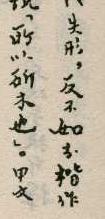 失形，反不如大楷作
「所以斫木也」。甲文